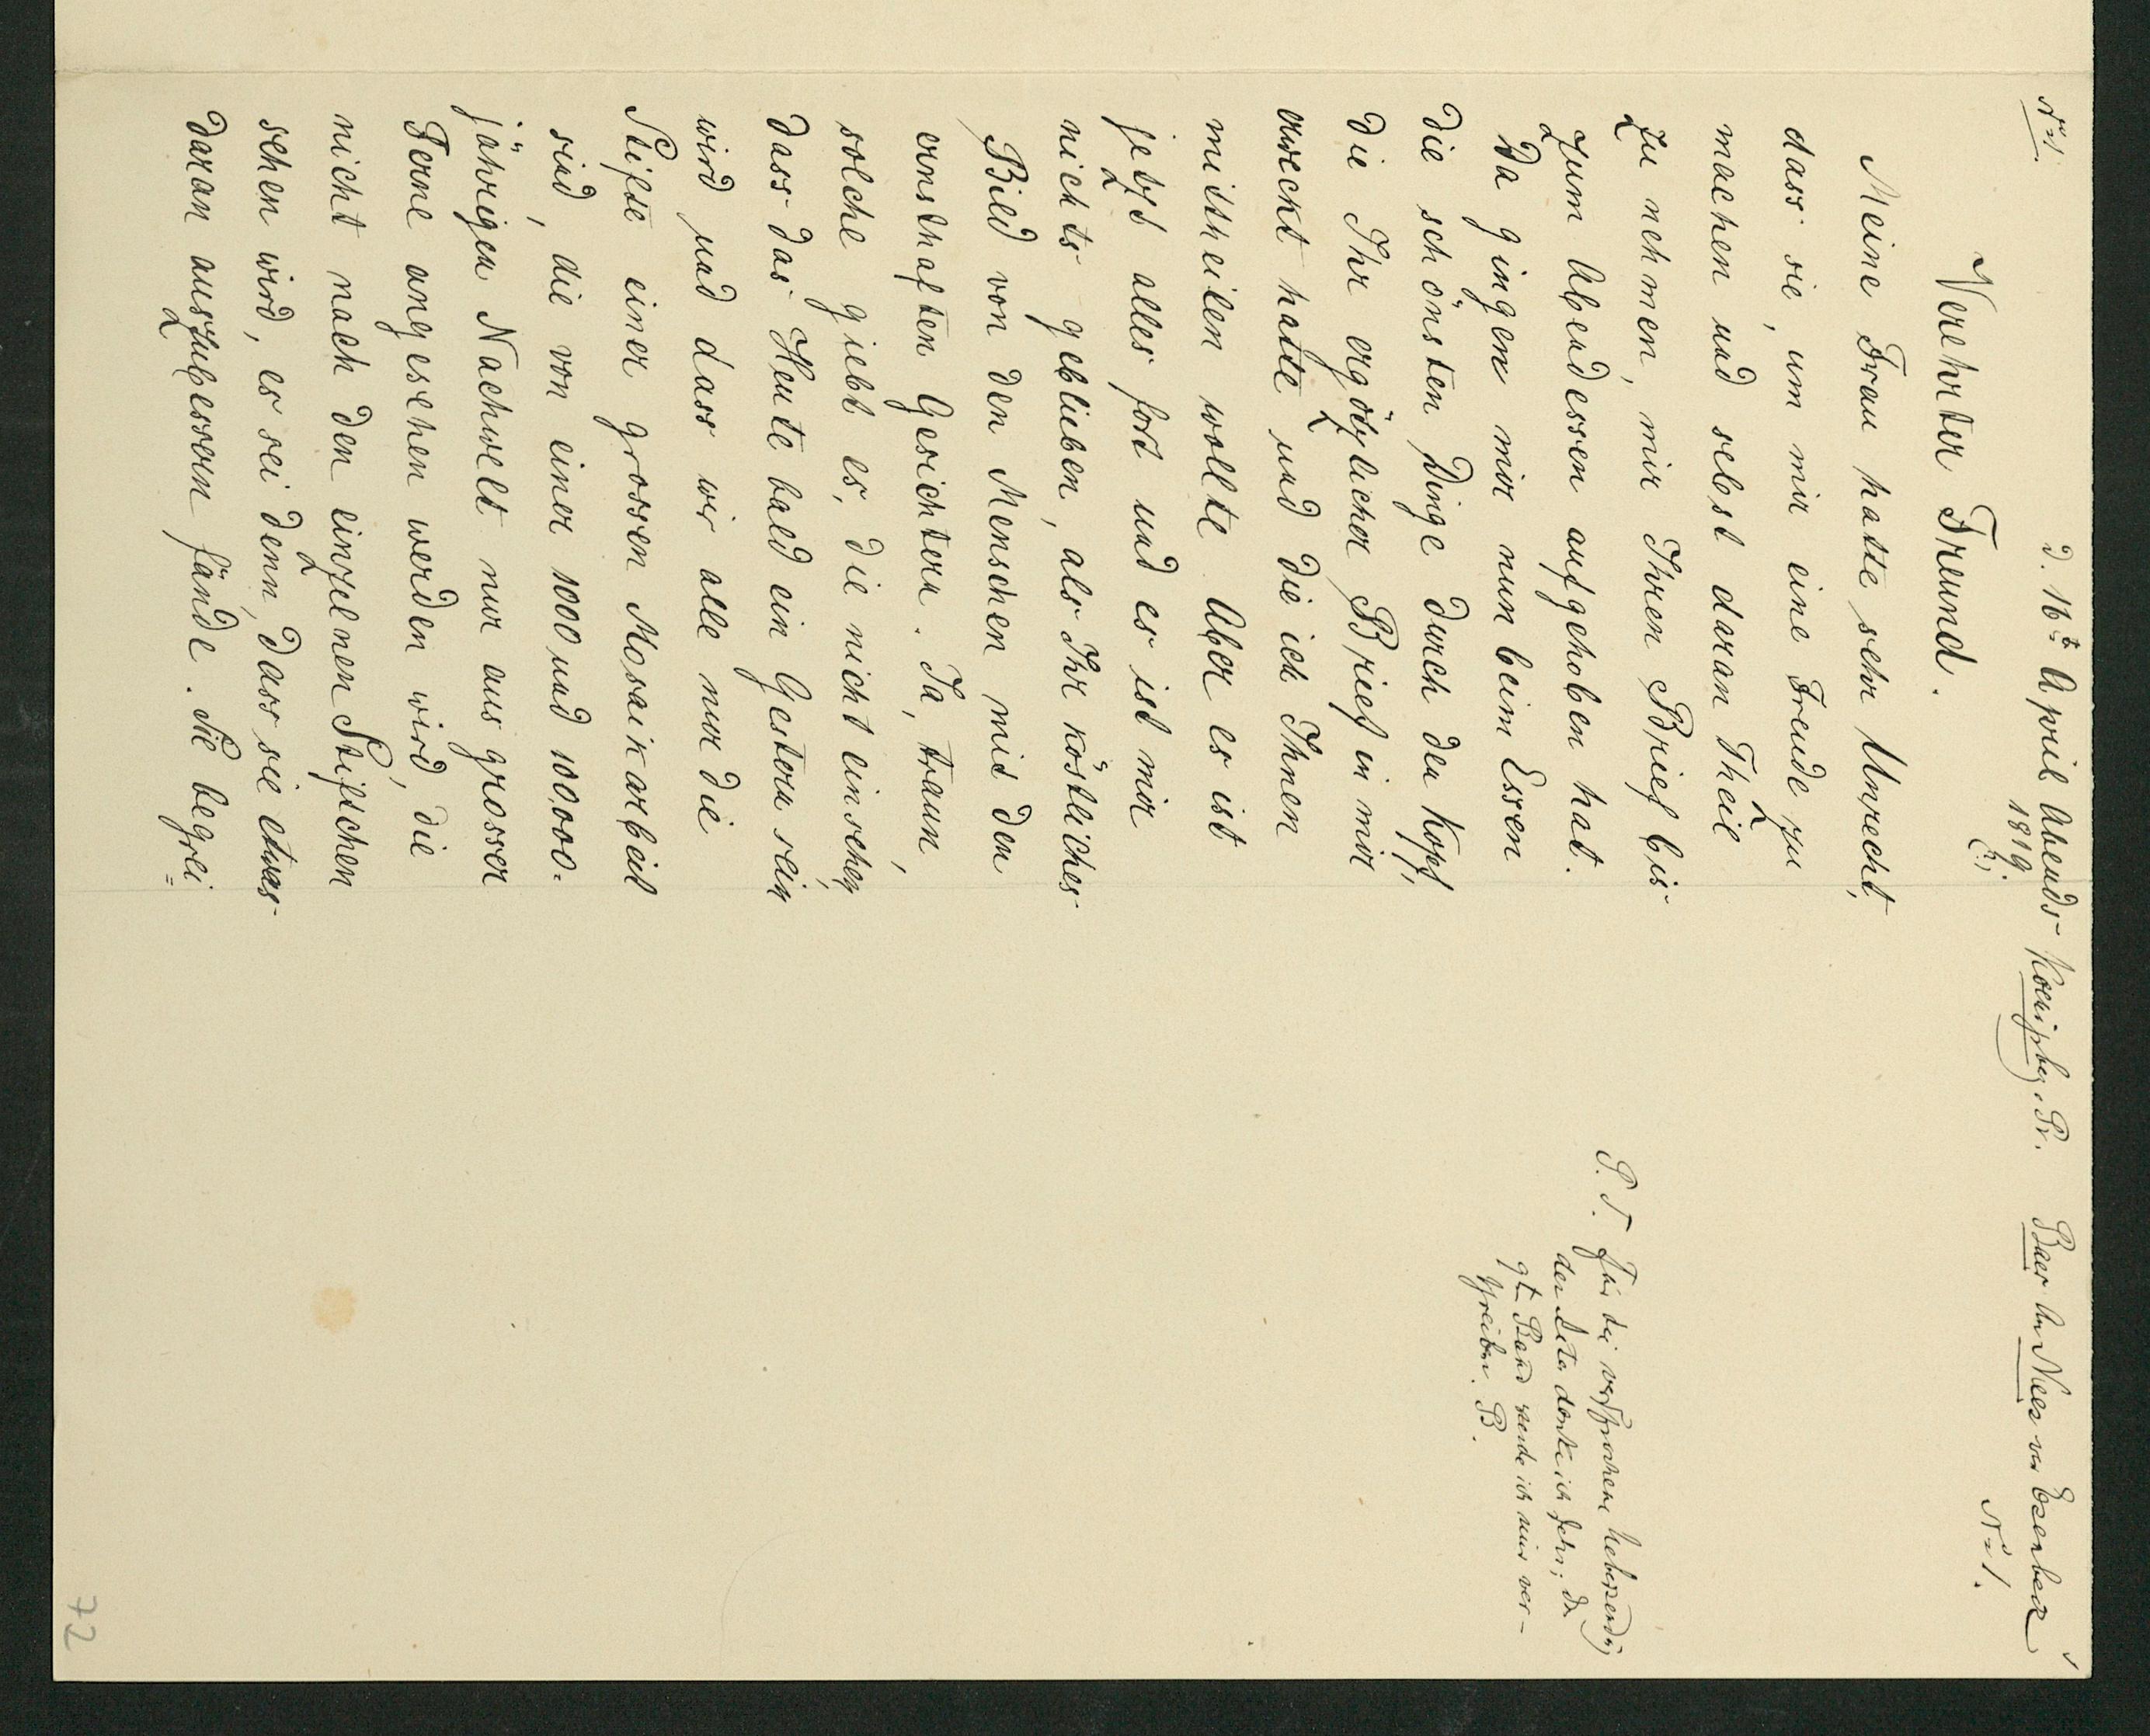 N<u>o</u> 1.
d. 16<sup>t</sup> April Abends Koenigsbg. Pr. Baer An Nees von Esenbeck
1819.
N<u>o</u> 1.
Verehrter Freund.
Meine Frau hatte sehr Unrecht,
dass sie, um mir eine Freude zu
machen und selbst daran Theil
zu nehmen, mir Ihren Brief bis
zum Abendessen aufgehoben hat.
Da gingen mir nun beim Essen
die schönsten Dinge durch den Kopf,
die Ihr ergözlicher Brief in mir
erweckt hatte und die ich Ihnen
mittheilen wollte. Aber es ist
jetzt alles fort und es ist mir
nichts geblieben, als Ihr köstliches
Bild von den Menschen mit den
ernsthaften Gesichtern. Ja, traun,
solche giebt es, die nicht einsehen,
dass das Heute bald ein Gestern sein
wird und dass wir alle nur die
Stifte einer grossen Mosaikarbeit
sind, die von einer 1000 und 10.000-
jährigen Nachwelt nur aus grosser
Ferne angesehen werden wird, die
nicht nach den einzelnen Stiftchen
sehen wird, es sei denn, dass sie etwas
daran auszubessern fände. Sie begrei=
P. S. Für die versprochene Uebersendg
der danke ich sehr; den
9<sup>t</sup> Band werde ich mir ver-
schreiben. B.
72